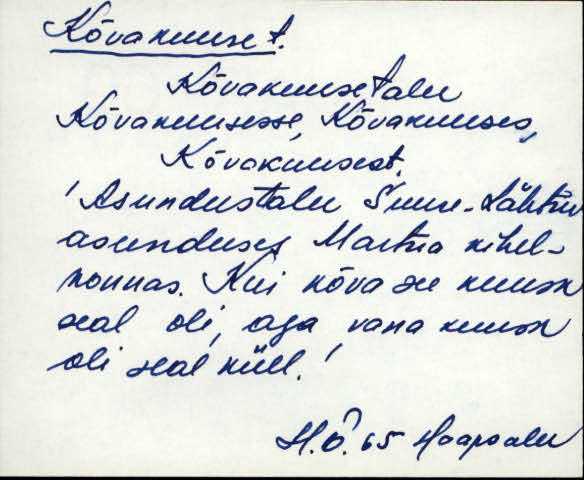 Kõvakuuse t.
Kõvakuuse talu
Kõvakuusesse, Kõvakuuses,
Kõvakuusest.
'Asundustalu Suure-Lähtru
asunduses Martna kihel-
konnas. Kui kõva see kuusk
seal oli, aga vana kuusk
oli seal küll.'
H.Õ. 65 Haapsalu